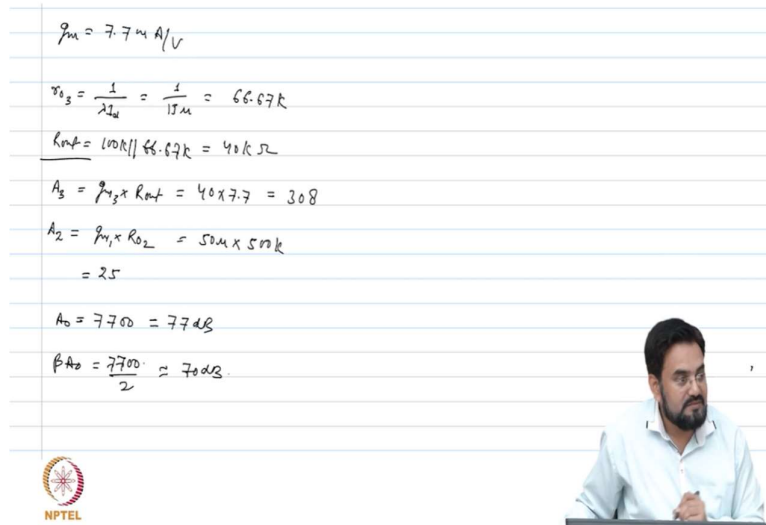 gm = 7.7 m A/V
ro3 = 1/λId = 1/15μ = 66.67K
Rout = 100K || 66.67K = 40K Ω
A3 = gm3 x Rout = 40 x 7.7 = 308
A2 = gm1 x Ro2 = 50μ x 500k
= 25
A0 = 7700 = 77dB
βA0 = 7700/2 ≈ 70dB.
NPTEL